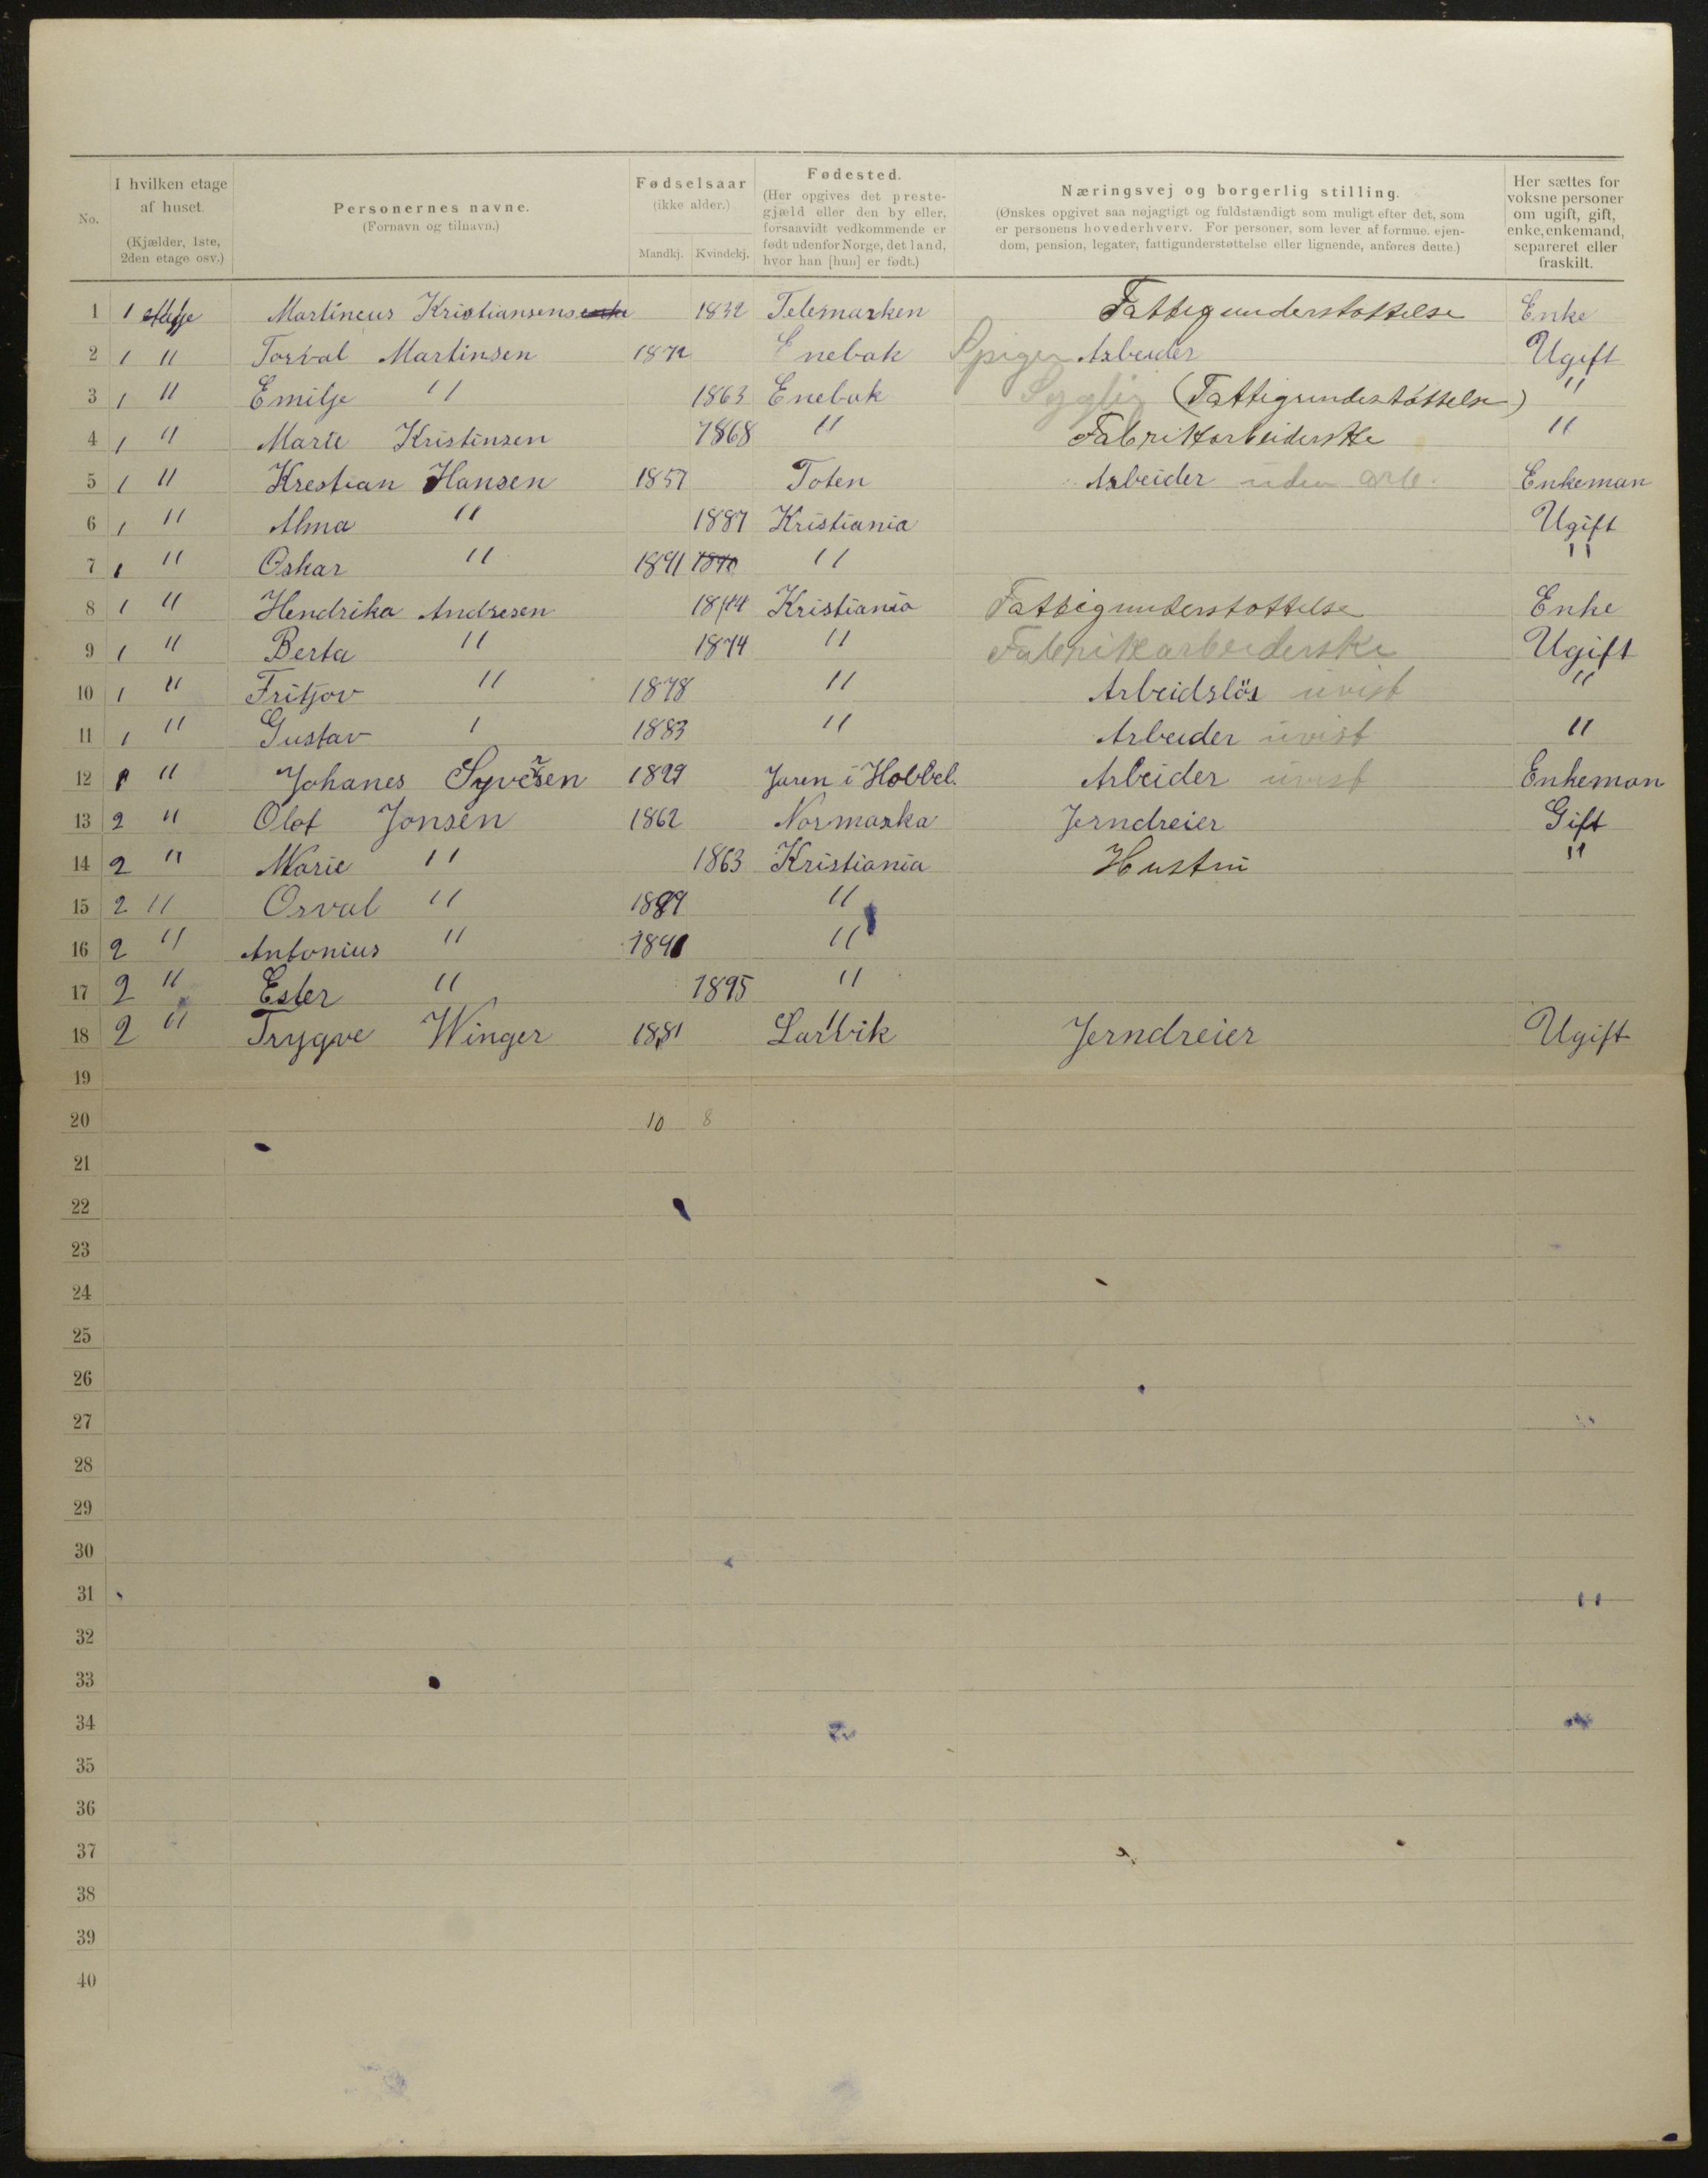 No. | I hvilken etage af huset. (Kjælder, 1ste, 2den etage osv.) | Personernes navne. (Fornavn og tilnavn.) | Fødselsaar (ikke alder.) Mandkj. Kvindekj. | Fødested. (Her opgives det prestegjæld eller den by eller, forsaavidt vedkommende er født udenfor Norge, det land, hvor han [hun] er født.) | Næringsvej og borgerlig stilling. (Ønskes opgivet saa nøjagtigt og fuldstændigt som muligt efter det, som er personens hovederhverv. For personer, som lever af formue, ejendom, pension, legater, fattigunderstøttelse eller lignende, anføres dette.) | Her sættes for voksne personer om ugift, gift, enke, enkemand, separeret eller fraskilt.
1 1 etage Martineus Kristiansens enke 1832 Telemarken Fattigunderstøttelse Enke
2 1 " Torval Martinsen 1872 Enebak Spiger Arbeider Ugift
3 1 " Emilje " 1863 Enebak Syglig (Fattigunderstøttelse) "
4 1 " Marie Kristinsen 1868 " Fabrikkarbeiderske "
5 1 " Krestian Hansen 1857 Toten Arbeider uden arb. Enkeman
6 1 " Alma " 1887 Kristiania Ugift
7 1 " Oskar " 1891 1890 " "
8 1 " Hendrika Andresen 1844 Kristiania Fattigunderstottelse Enke
9 1 " Berta " 1874 " Fabrikkarbeiderske Ugift
10 1 " Fritjov " 1878 " Arbeidslös uvist "
11 1 " Gustav " 1883 " Arbeider uvist "
12 1 " Johanes Syversen 1829 Jaren i Hobbel. Arbeider uvist Enkeman
13 2 " Olaf Jonsen 1862 Normarka Jerndreier Gift
14 2 " Marie " 1863 Kristiania Hustru "
15 2 " Orval " 1889 "
16 2 " Antonius " 1891 "
17 2 " Ester " 1895 "
18 2 " Trygve Winger 1881 Larvik Jerndreier Ugift
19
20 10 8
21
22
23
24
25
26
27
28
29
30
31 "
32
33
34
35
36
37
38
39
40